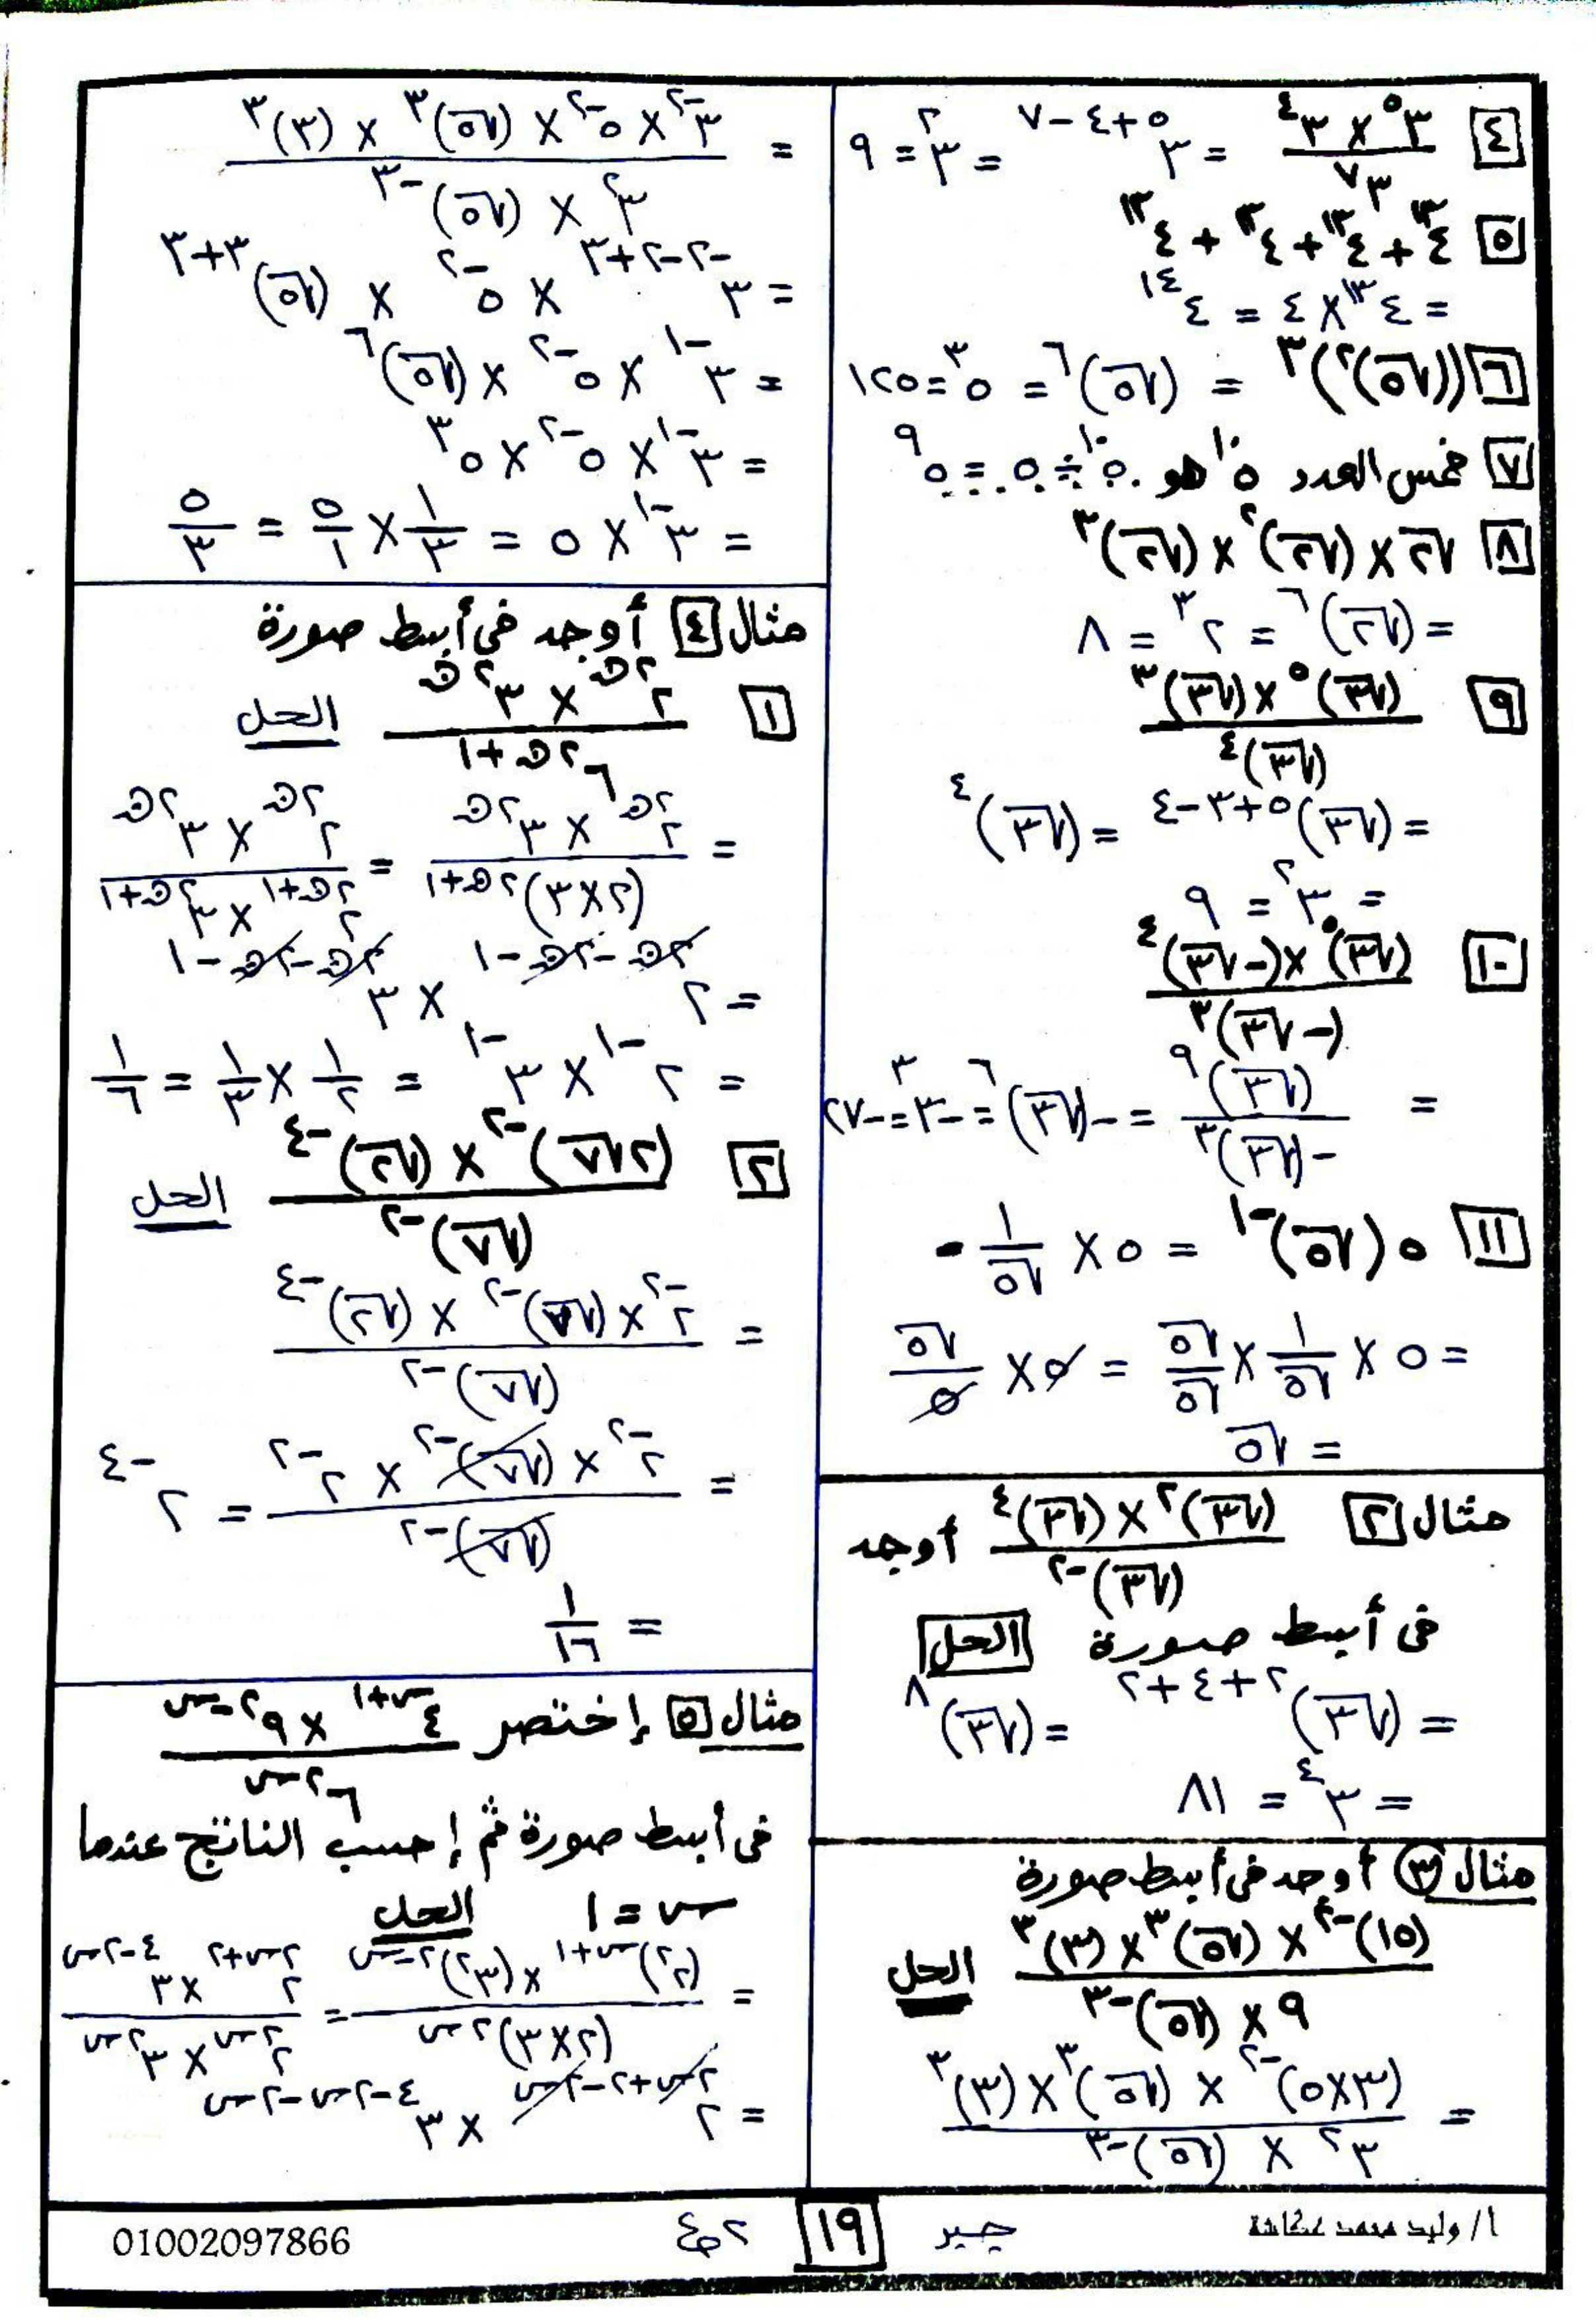 ٤ (٣^٥ × ٣^٤)/٣^٧ = ٣^(٥+٤-٧) = ٣^٢ = ٩
٥ ٤^١٣ + ٤^١٣ + ٤^١٣ + ٤^١٣
= ٤^١٣ × ٤ = ٤^١٤
٦ ((√٥)^٢)^٣ = (√٥)^٦ = ٥^٣ = ١٢٥
٧ خمس العدد ٥^١٠ هو ٥^١٠ ÷ ٥ = ٥^٩
٨ √٢ × (√٢)^٢ × (√٢)^٣
= (√٢)^٦ = ٢^٣ = ٨
٩ ((√٣)^٥ × (√٣)^٣)/(√٣)^٤
= (√٣)^(٥+٣-٤) = (√٣)^٤
= ٣^٢ = ٩
١٠ ((√٣)^٥ × (-√٣)^٤)/(-√٣)^٣
= (√٣)^٩/-(√٣)^٣ = -(√٣)^٦ = -٣^٣ = -٢٧
١١ ٥(√٥)^-١ = ٥ × ١/√٥
= ٥ × ١/√٥ × √٥/√٥ = ٥ × √٥/٥
= √٥
مثال ٢ ((√٣)^٢ × (√٣)^٤)/(√٣)^-٢ أوجد
فى أبسط صورة الحل
= (√٣)^(٢+٤+٢) = (√٣)^٨
= ٣^٤ = ٨١
مثال ٣ أوجد فى أبسط صورة
((١٥)^-٢ × (√٥)^٣ × (٣)^٣)/(٩ × (√٥)^-٣) الحل
= ((٣×٥)^-٢ × (√٥)^٣ × (٣)^٣)/(٣^٢ × (√٥)^-٣)
= (٣^-٢ × ٥^-٢ × (√٥)^٣ × (٣)^٣)/(٣^٢ × (√٥)^-٣)
= ٣^(-٢-٢+٣) × ٥^-٢ × (√٥)^(٣+٣)
= ٣^-١ × ٥^-٢ × (√٥)^٦
= ٣^-١ × ٥^-٢ × ٥^٣
= ٣^-١ × ٥ = ١/٣ × ٥/١ = ٥/٣
مثال ٤ أوجد فى أبسط صورة
١ (٢^٢ن × ٣^٢ن)/٦^(٢ن+١) الحل
= (٢^٢ن × ٣^٢ن)/(٢×٣)^(٢ن+١) = (٢^٢ن × ٣^٢ن)/(٢^(٢ن+١) × ٣^(٢ن+١))
= ٢^(٢ن-٢ن-١) × ٣^(٢ن-٢ن-١)
= ٢^-١ × ٣^-١ = ١/٢ × ١/٣ = ١/٦
٢ ((٢√٧)^-٢ × (√٢)^-٤)/(√٧)^-٢ الحل
= (٢^-٢ × (√٧)^-٢ × (√٢)^-٤)/(√٧)^-٢
= (٢^-٢ × (√٧)^-٢ × ٢^-٢)/(√٧)^-٢ = ٢^-٤
= ١/١٦
مثال ٥ إختصر (٤^(س+١) × ٩^(٢-س))/٦^٢س
فى أبسط صورة ثم إحسب الناتج عندما
س = ١ الحل
= ((٢^٢)^(س+١) × (٣^٢)^(٢-س))/(٢×٣)^٢س = (٢^(٢س+٢) × ٣^(٤-٢س))/(٢^٢س × ٣^٢س)
= ٢^(٢س+٢-٢س) × ٣^(٤-٢س-٢س)
أ/ وليد محمد عكاشة جبر ١٩ ٢ع 01002097866